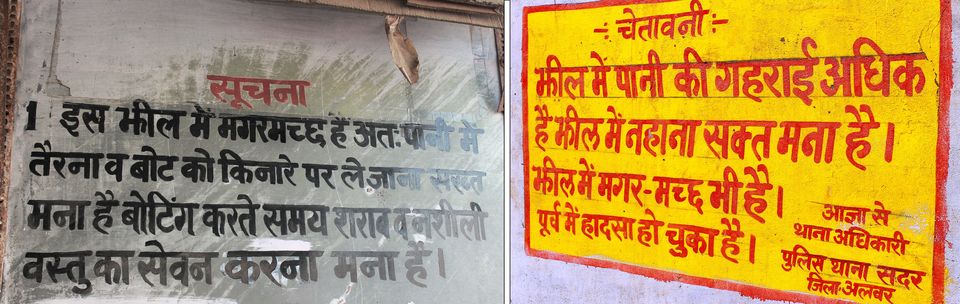 सूचना
1 इस झील में मगरमच्छ हैं अतः पानी में
तैरना व बोट को किनारे पर ले जाना सख्त
मना है बोटिंग करते समय शराब व नशीली
वस्तु का सेवन करना मना है।
-: चेतावनी :-
झील में पानी की गहराई अधिक
है झील में नहाना सक्त मना है।
झील में मगर-मच्छ भी है।
पूर्व में हादसा हो चुका है।
आज्ञा से
थाना अधिकारी
पुलिस थाना सदर
जिला-अलवर